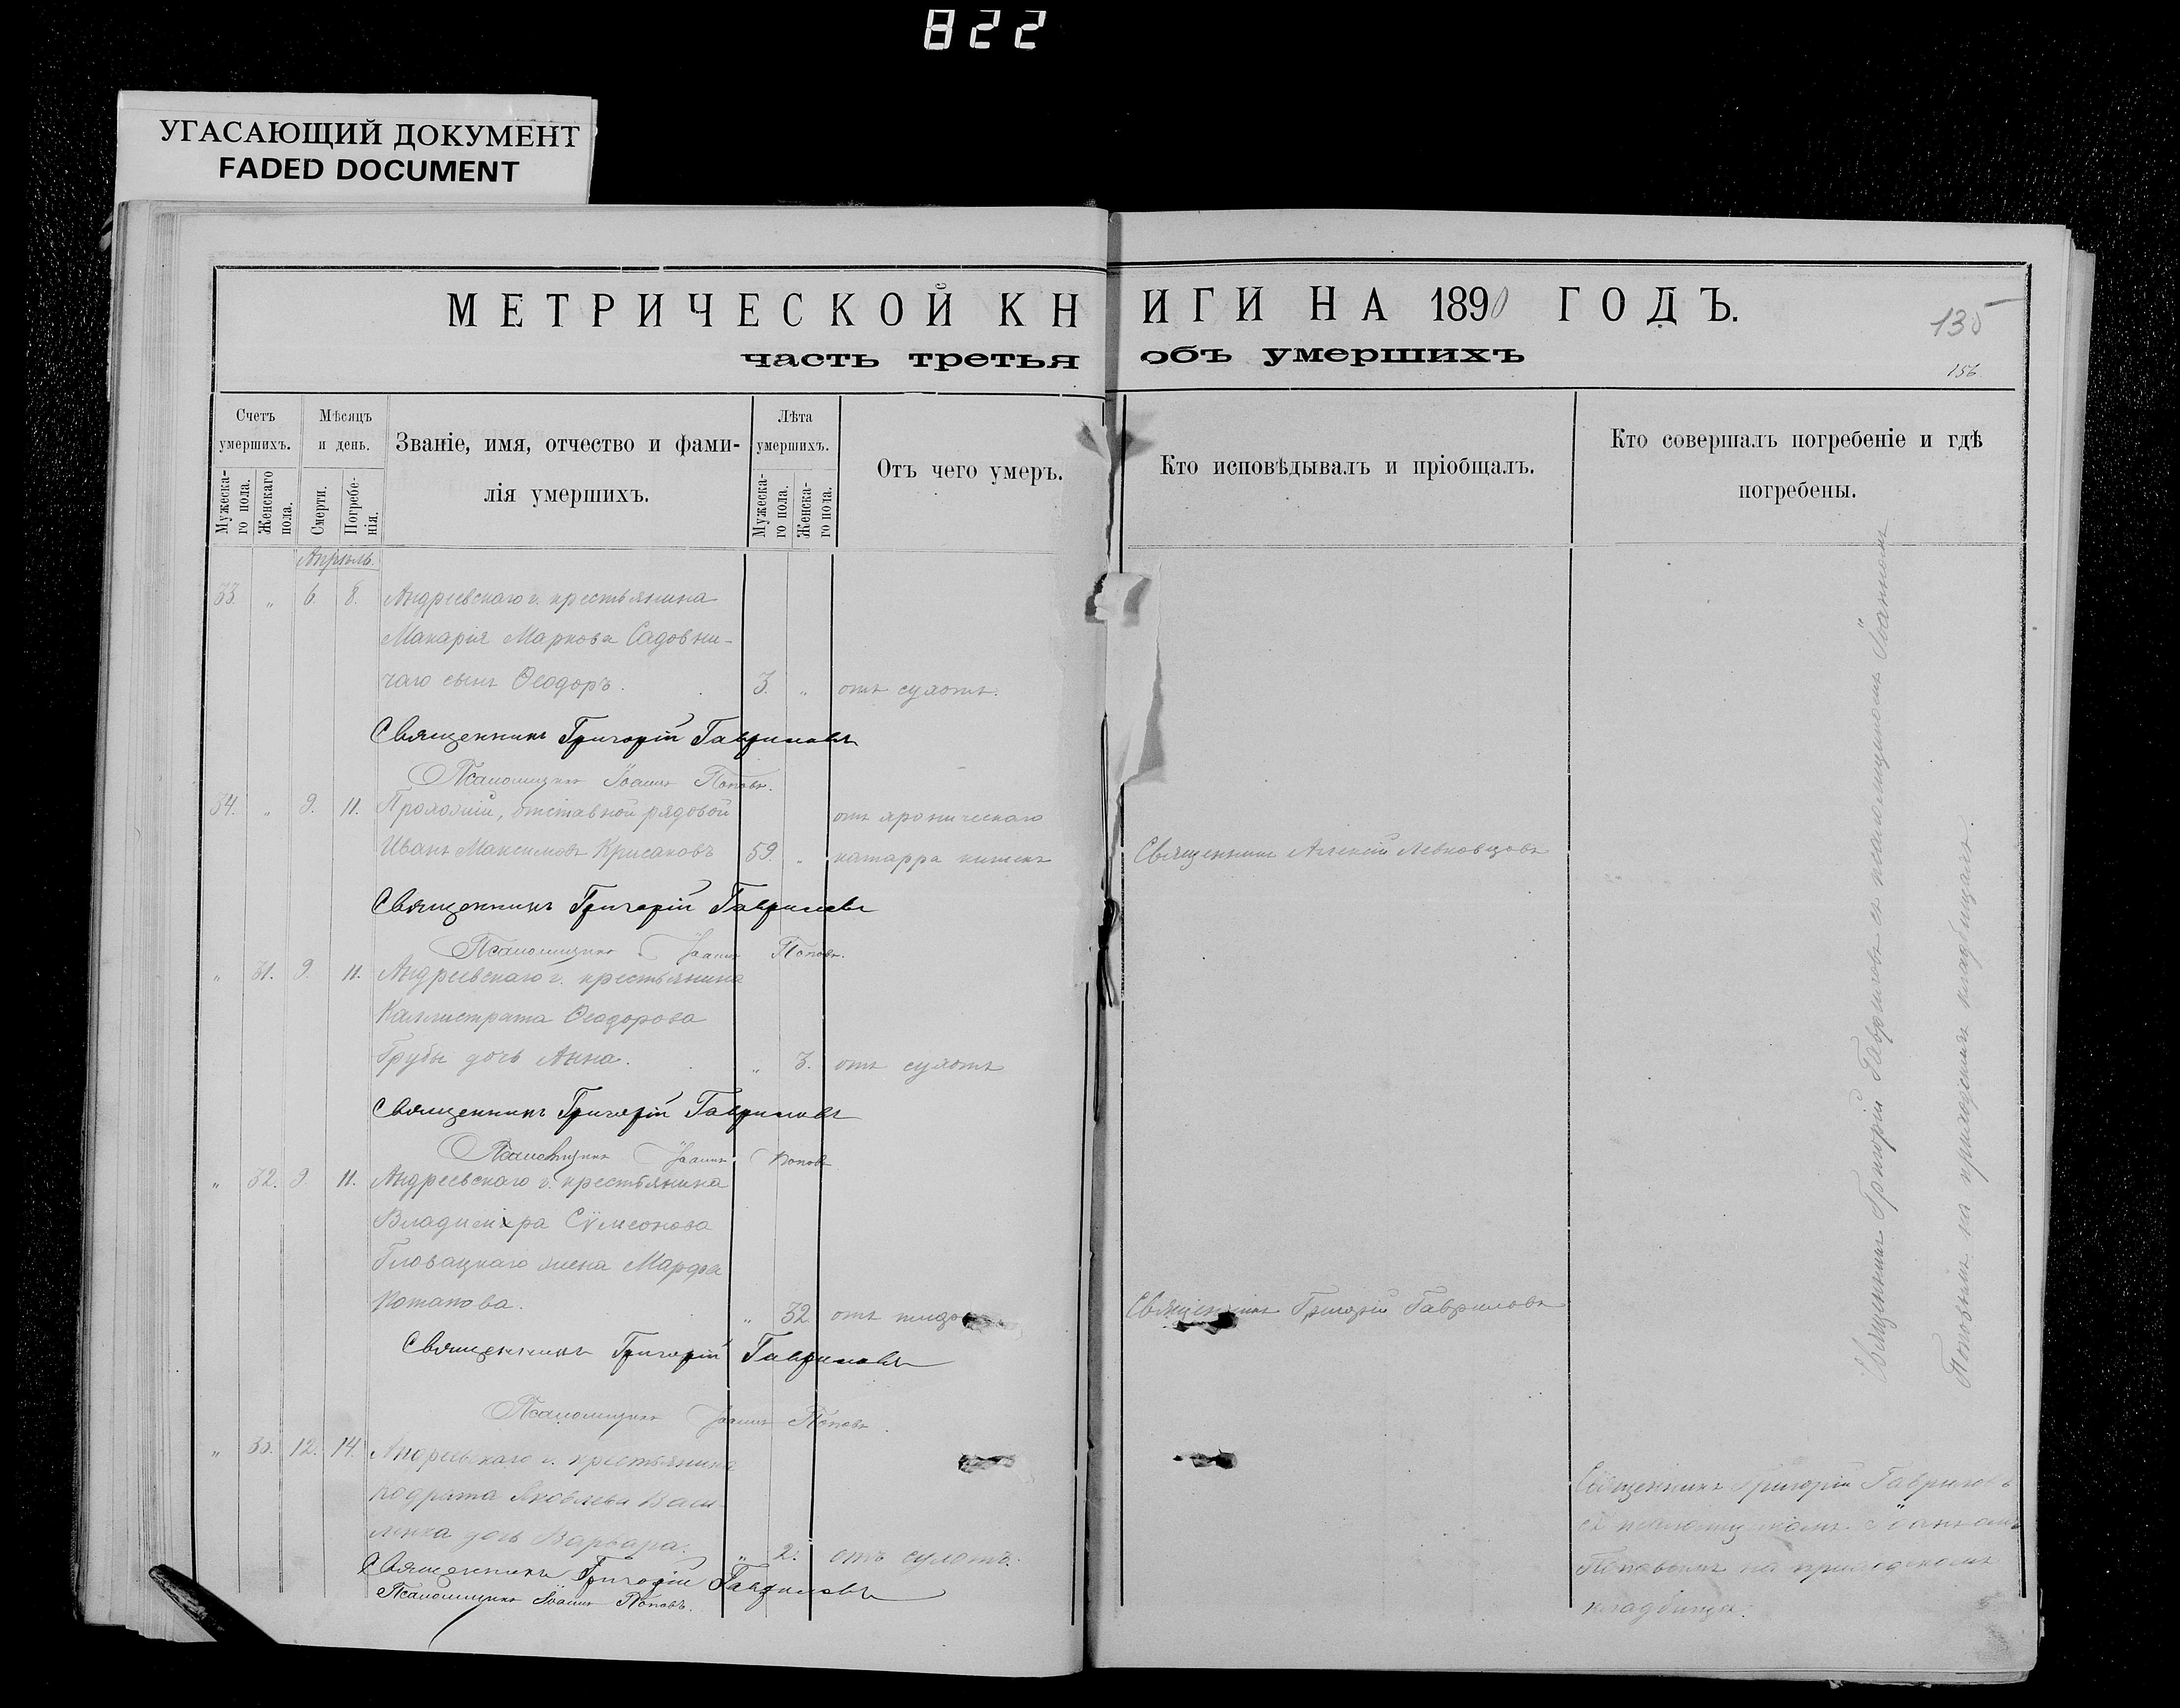 822
УГАСАЮЩИЙ ДОКУМЕНТ
FADED DOCUMENT
МЕТРИЧЕСКОЙ КНИГИ НА 1890 ГОДЪ.
135
часть третья объ умершихъ
156
Счетъ умершихъ.
Мужеска-го пола.
Женскаго пола.
Мѣсяцъ и день.
Смерти.
Погребе-нія.
Званіе, имя, отчество и фами-
лія умершихъ.
Лѣта умершихъ.
Мужеска-го пола.
Женска-го пола.
Отъ чего умеръ.
Кто исповѣдывалъ и пріобщалъ.
Кто совершалъ погребеніе и гдѣ
погребены.
Апрѣль.
33. " 6. 8. Андреевскаго г. крестьянина
Макарія Маркова Садовни-
чаго сынъ Ѳеодоръ. 3. " отъ сухотъ.
Священникъ Григорій Гавриловъ
Псаломщикъ Іоаннъ Поповъ.
34. " 9. 11. Прохожій, отставной рядовой отъ хроническаго
Иванъ Максимовъ Крисаковъ 59. " катарра кишекъ Священникъ Алексій Левковцовъ
Священникъ Григорій Гавриловъ
Псаломщикъ Іоаннъ Поповъ.
" 31. 9. 11. Андреевскаго г. крестьянина
Каллистрата Ѳеодорова
Грубы дочь Анна. " 3. отъ сухотъ
Священникъ Григорій Гавриловъ
Псаломщикъ Іоаннъ Поповъ
" 32. 9. 11. Андреевскаго г. крестьянина
Владиміра Сѵмеонова
Гловацкаго жена Марфа
Потапова. " 32 отъ Священникъ Григорій Гавриловъ
Священникъ Григорій Гавриловъ
Псаломщикъ Іоаннъ Поповъ.
" 33. 12. 14. Андреевскаго г. крестьянина
Кодрата Яковлева Васи-
ленка дочь Варвара. " 2. отъ сухотъ.
Священникъ Григорій Гавриловъ
Псаломщикъ Іоаннъ Поповъ.
Священникъ Григорій Гавриловъ съ псаломщикомъ Іоанномъ
Поповымъ на приходскомъ кладбищѣ.
Священникъ Григорій Гавриловъ
съ псаломщикомъ Іоанномъ
Поповымъ на приходскомъ
кладбищѣ.